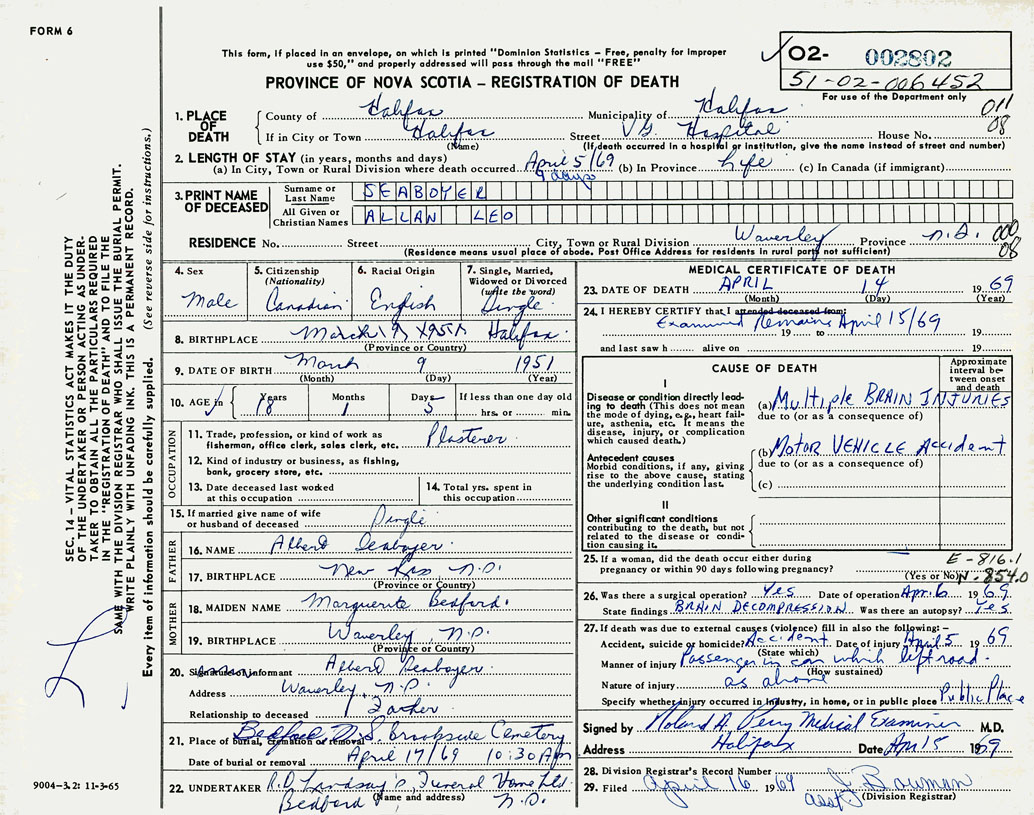 FORM 6
This form, if placed in an envelope, on which is printed "Dominion Statistics – Free, penalty for improper
use $50," and properly addressed will pass through the mail "FREE"
PROVINCE OF NOVA SCOTIA – REGISTRATION OF DEATH
✓ O2- 002802
51-02-006452
For use of the Department only
011
08
1. PLACE OF DEATH
County of Halifax Municipality of Halifax
If in City or Town Halifax Street VG Hospital House No.
(Name) (If death occurred in a hospital or institution, give the name instead of street and number)
2. LENGTH OF STAY (in years, months and days)
(a) In City, Town or Rural Division where death occurred April 5/69 (b) In Province Life (c) In Canada (if immigrant)
9 days
3. PRINT NAME OF DECEASED
Surname or Last Name SEABOYER
All Given or Christian Names ALLAN LEO
RESIDENCE No. Street City, Town or Rural Division Waverley Province N.S. 000
08
(Residence means usual place of abode. Post Office Address for residents in rural parts not sufficient)
4. Sex Male
5. Citizenship (Nationality) Canadian
6. Racial Origin English
7. Single, Married, Widowed or Divorced (write the word) Single
8. BIRTHPLACE March 9 1951 Halifax
(Province or Country)
9. DATE OF BIRTH March 9 1951
(Month) (Day) (Year)
10. AGE in Years Months Days If less than one day old
18 1 5 hrs. or min.
OCCUPATION
11. Trade, profession, or kind of work as fisherman, office clerk, sales clerk, etc. Plasterer
12. Kind of industry or business, as fishing, bank, grocery store, etc.
13. Date deceased last worked at this occupation
14. Total yrs. spent in this occupation
15. If married give name of wife or husband of deceased Single
FATHER
16. NAME Albert Seaboyer
17. BIRTHPLACE New Ross N.S.
(Province or Country)
MOTHER
18. MAIDEN NAME Marguerite Bedford
19. BIRTHPLACE Waverley, N.S.
(Province or Country)
20. Signature of informant Albert Seaboyer
Address Waverley, N.S.
Relationship to deceased Father
21. Place of burial, cremation or removal Bedford N.S. Brookside Cemetery
Date of burial or removal April 17/69 10:30 Am
22. UNDERTAKER R.D. Lindsay's Funeral Home Ltd.
Bedford (Name and address) N.S.
MEDICAL CERTIFICATE OF DEATH
23. DATE OF DEATH APRIL 14 1969
(Month) (Day) (Year)
24. I HEREBY CERTIFY that I attended deceased from:
Examined Remains April 15/69
19 to 19
and last saw h alive on 19
CAUSE OF DEATH
Approximate interval between onset and death
I
Disease or condition directly leading to death (This does not mean the mode of dying, e.g., heart failure, asthenia, etc. It means the disease, injury, or complication which caused death.)
(a) Multiple BRAIN INJURIES
due to (or as a consequence of)
Antecedent causes
Morbid conditions, if any, giving rise to the above cause, stating the underlying condition last.
(b) MOTOR VEHICLE Accident
due to (or as a consequence of)
(c)
II
Other significant conditions contributing to the death, but not related to the disease or condition causing it.
25. If a woman, did the death occur either during pregnancy or within 90 days following pregnancy? (Yes or No)
E-816.1
N-854.0
26. Was there a surgical operation? Yes Date of operation Apr. 6 1969
State findings BRAIN DECOMPRESSION Was there an autopsy? Yes
27. If death was due to external causes (violence) fill in also the following:–
Accident, suicide or homicide? Accident Date of injury April 5 1969
(State which)
Manner of injury Passenger in car which left road.
(How sustained)
Nature of injury as above
Specify whether injury occurred in industry, in home, or in public place Public Place
Signed by Roland A. Perry Medical Examiner M.D.
Address Halifax Date Apr 15 1969
28. Division Registrar's Record Number
29. Filed April 16 1969 J. Bowman
asst (Division Registrar)
SEC. 14 – VITAL STATISTICS ACT MAKES IT THE DUTY
OF THE UNDERTAKER OR PERSON ACTING AS UNDER-
TAKER TO OBTAIN ALL THE PARTICULARS REQUIRED
IN THE "REGISTRATION OF DEATH" AND TO FILE THE
SAME WITH THE DIVISION REGISTRAR WHO SHALL ISSUE THE BURIAL PERMIT.
WRITE PLAINLY WITH UNFADING INK. THIS IS A PERMANENT RECORD.
Every item of information should be carefully supplied. (See reverse side for instructions.)
9004-3.2: 11-3-65